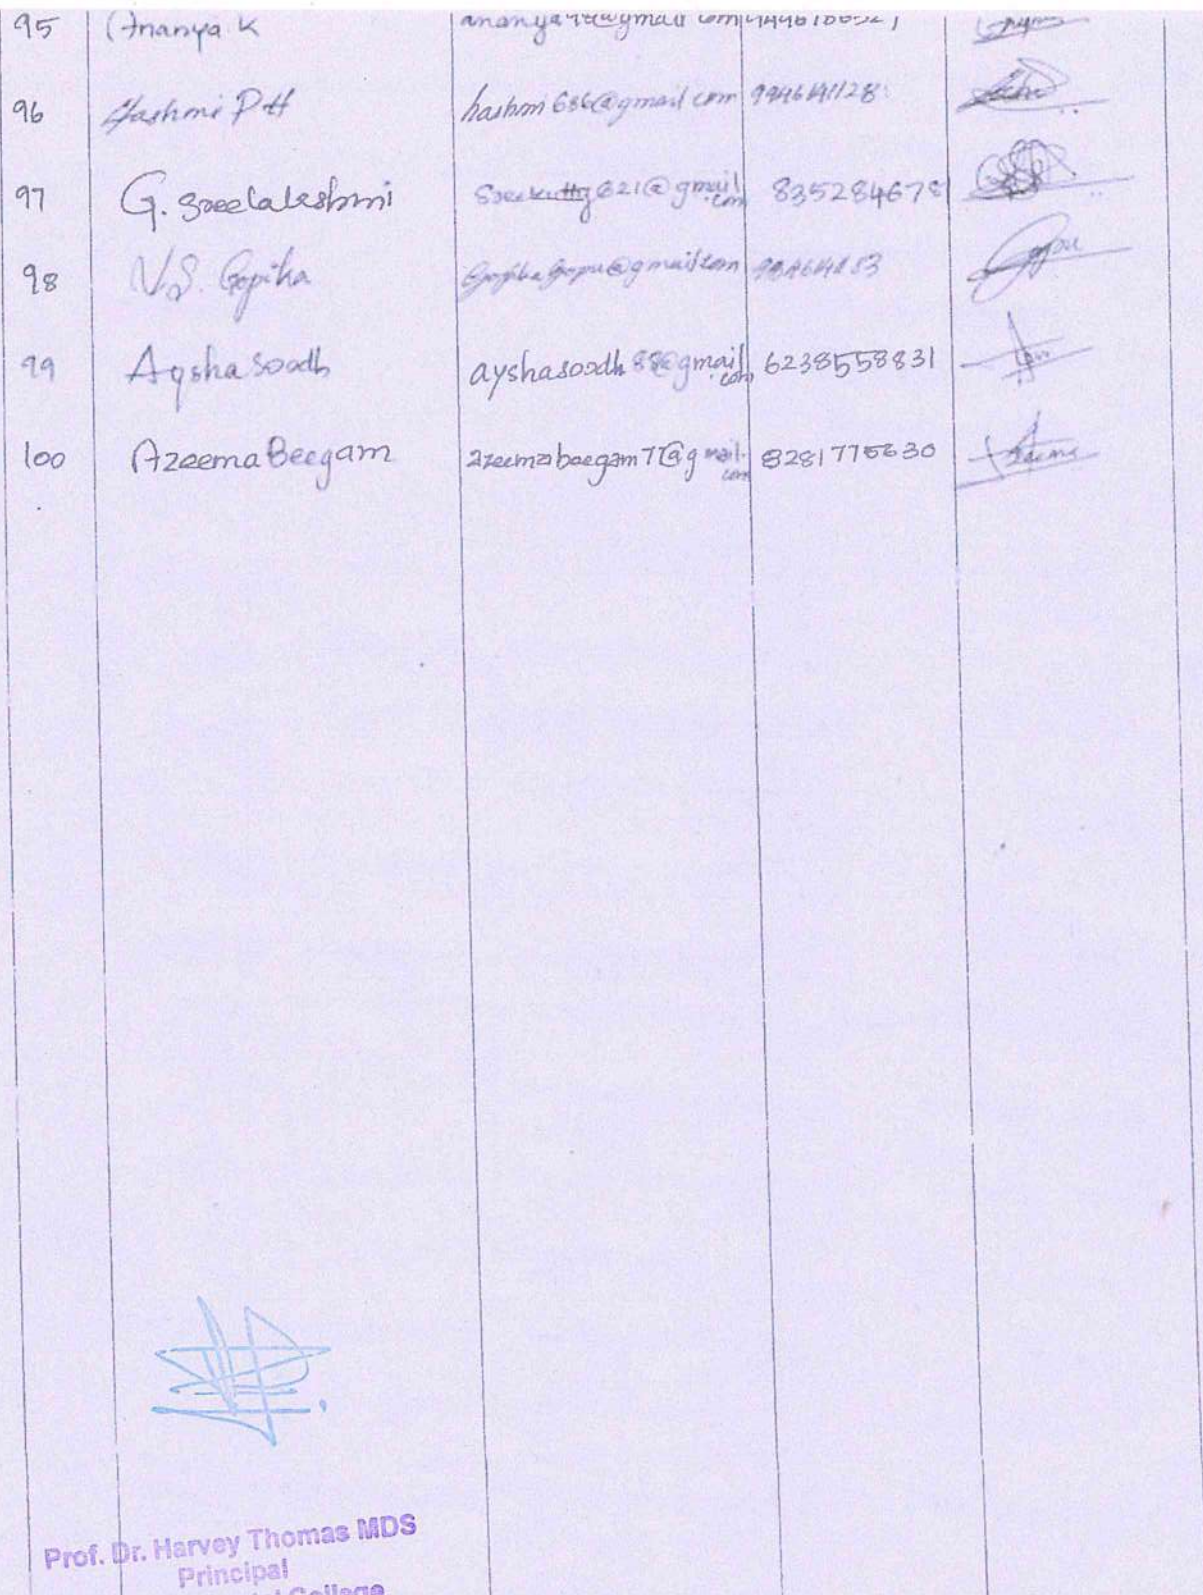 95 Ananya K
96 Hashmi P H hashm686@gmail com 9946141128
97 G. Sreelakshmi Sreekutty621@gmail.com 835284678
98 V.S. Gopika GopikaGopu@gmail.com
99 Aysha Soodh ayshasoodh88@gmail.com 6238558831
100 Azeema Beegam azeemabeegam7@gmail.com 8281775630
Prof. Dr. Harvey Thomas MDS
Principal
College